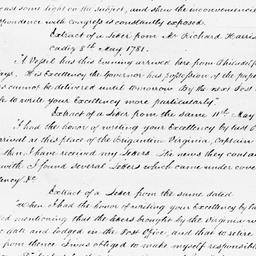 cast some light on the subject, and shew the inconvenience
spondence with congress is constantly exposed.
Extract of a Letter from Mr Richard Harris
Cadiz 8th May 1781.
"A Vessel has this evening arrived here from Philadelp
days. His Excellency the Governor has possession of the pape
s cannot be delivered until tomorrow. By the next Post
le to write your Excellency more particularly"
Extract of a Letter from the same 11th May
"I had the honor of writing your Excellency by last P
arrival at this place of the Brigantine Virginia, Captain
then I have received my Letters. The news they conta
with I found several Letters which came under cove
ency &c
Extract of a Letter from the same dated
"When I had the honor of writing your Excellency by la
ed mentioning that the Letters brought by the Virginia w
gall and lodged in the Post Office, and that to retire
from thence I was obliged to make myself responsibl